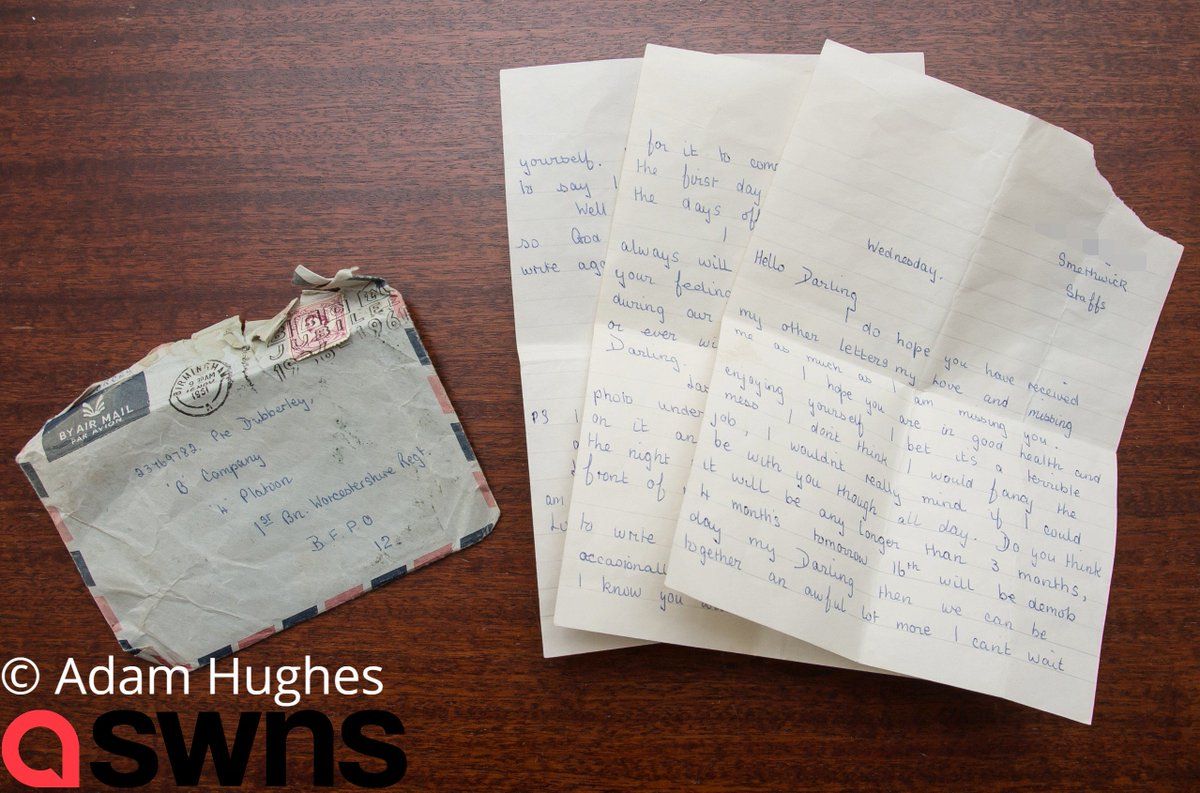 BY AIR MAIL
PAR AVION
BIRMINGHAM
1961
23769782. Pte Dubberley,
'B' Company
'4' Platoon
1ST Bn. Worcestershire Regt.
B.F.P.O
12.
yourself.
to say I
Well
so God
write aga
PS I
am
for it to come
the first day
the days off
I
always will
your feeling
during our
or ever wi
Darling.
photo under
on it an
the night
front of
to write
occasionall
I know you
Smethwick
Staffs
Wednesday.
Hello Darling
I do hope you have received
my other letters my love and missing
me as much as I am missing you.
I hope you are in good health and
enjoying yourself I bet its a terrible
mess I dont think I would fancy the
job, I wouldnt really mind if I could
be with you though all day. Do you think
it will be any longer than 3 months,
4 months tomorrow 16th will be demob
day my Darling then we can be
together an awful lot more I cant wait
© Adam Hughes
swns